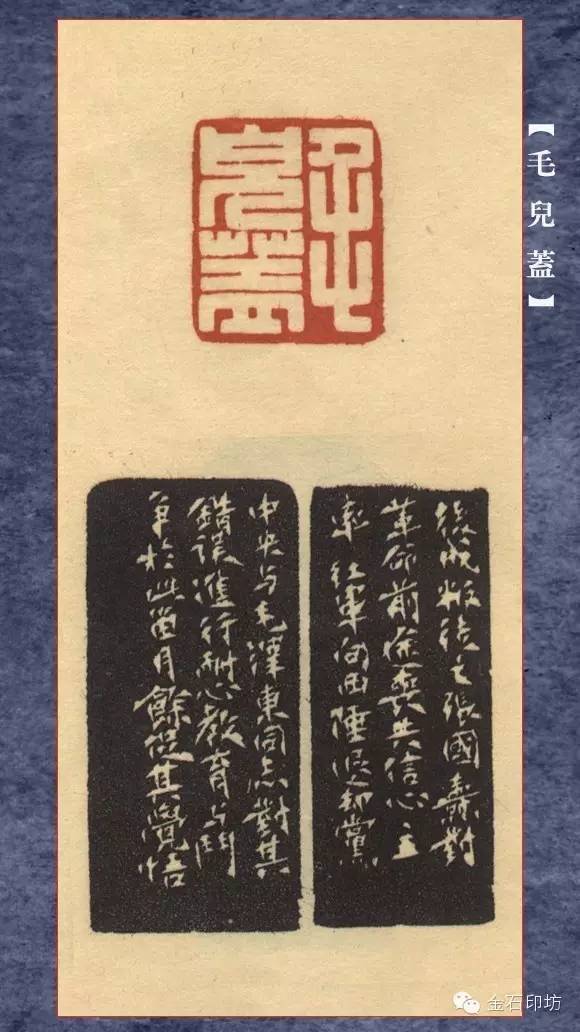 【毛兒蓋】
毛
兒蓋
後成叛徒之張國燾對
革命前途喪失信心主
率紅軍向西陲退却黨
中央与毛澤東同志對其
錯誤進行耐心教育与鬥
爭於此留月餘促其覺悟
金石印坊